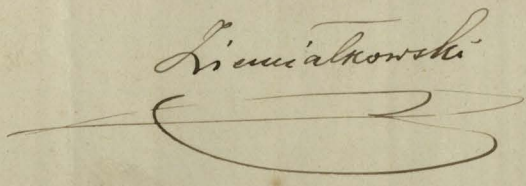 Ziemiałkowski